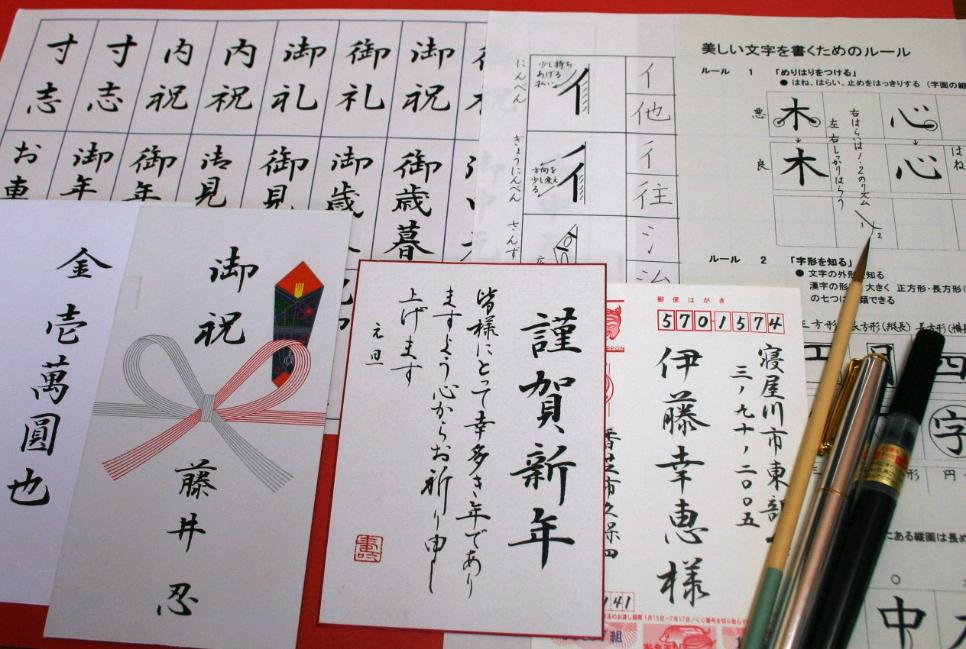 寸志
寸志
内祝
内祝
御礼
御礼
御祝
御年
御年
御見
御歳暮
御歳暮
にんべん
少し持ち
あげる
払い
イ
イ
他
ぎょうにんべん
方向を
少し変え
る
彳
彳
往
さんず
氵
美しい文字を書くためのルール
ルール 1 「めりはりをつける」
● はね、はらい、止めをはっきりする
悪
木
心
良
木
心
右はらいは1・2のリズム
左右しっかりはらう
1
2
ルール 2 「字形を知る」
● 文字の外形を知る
大きく 正方形・長方形
の七つ
長方形(縦長) 長方形
四
字
円
ある縦画は長め
中
金壱萬圓也
御祝
藤井忍
謹賀新年
皆様にとって幸多き年であり
ますよう心からお祈り申し
上げます
元旦
郵便はがき
5701574
寝屋川市東部
三ノ九十ノ二〇〇五
伊藤幸恵様
香芝市久保田
141